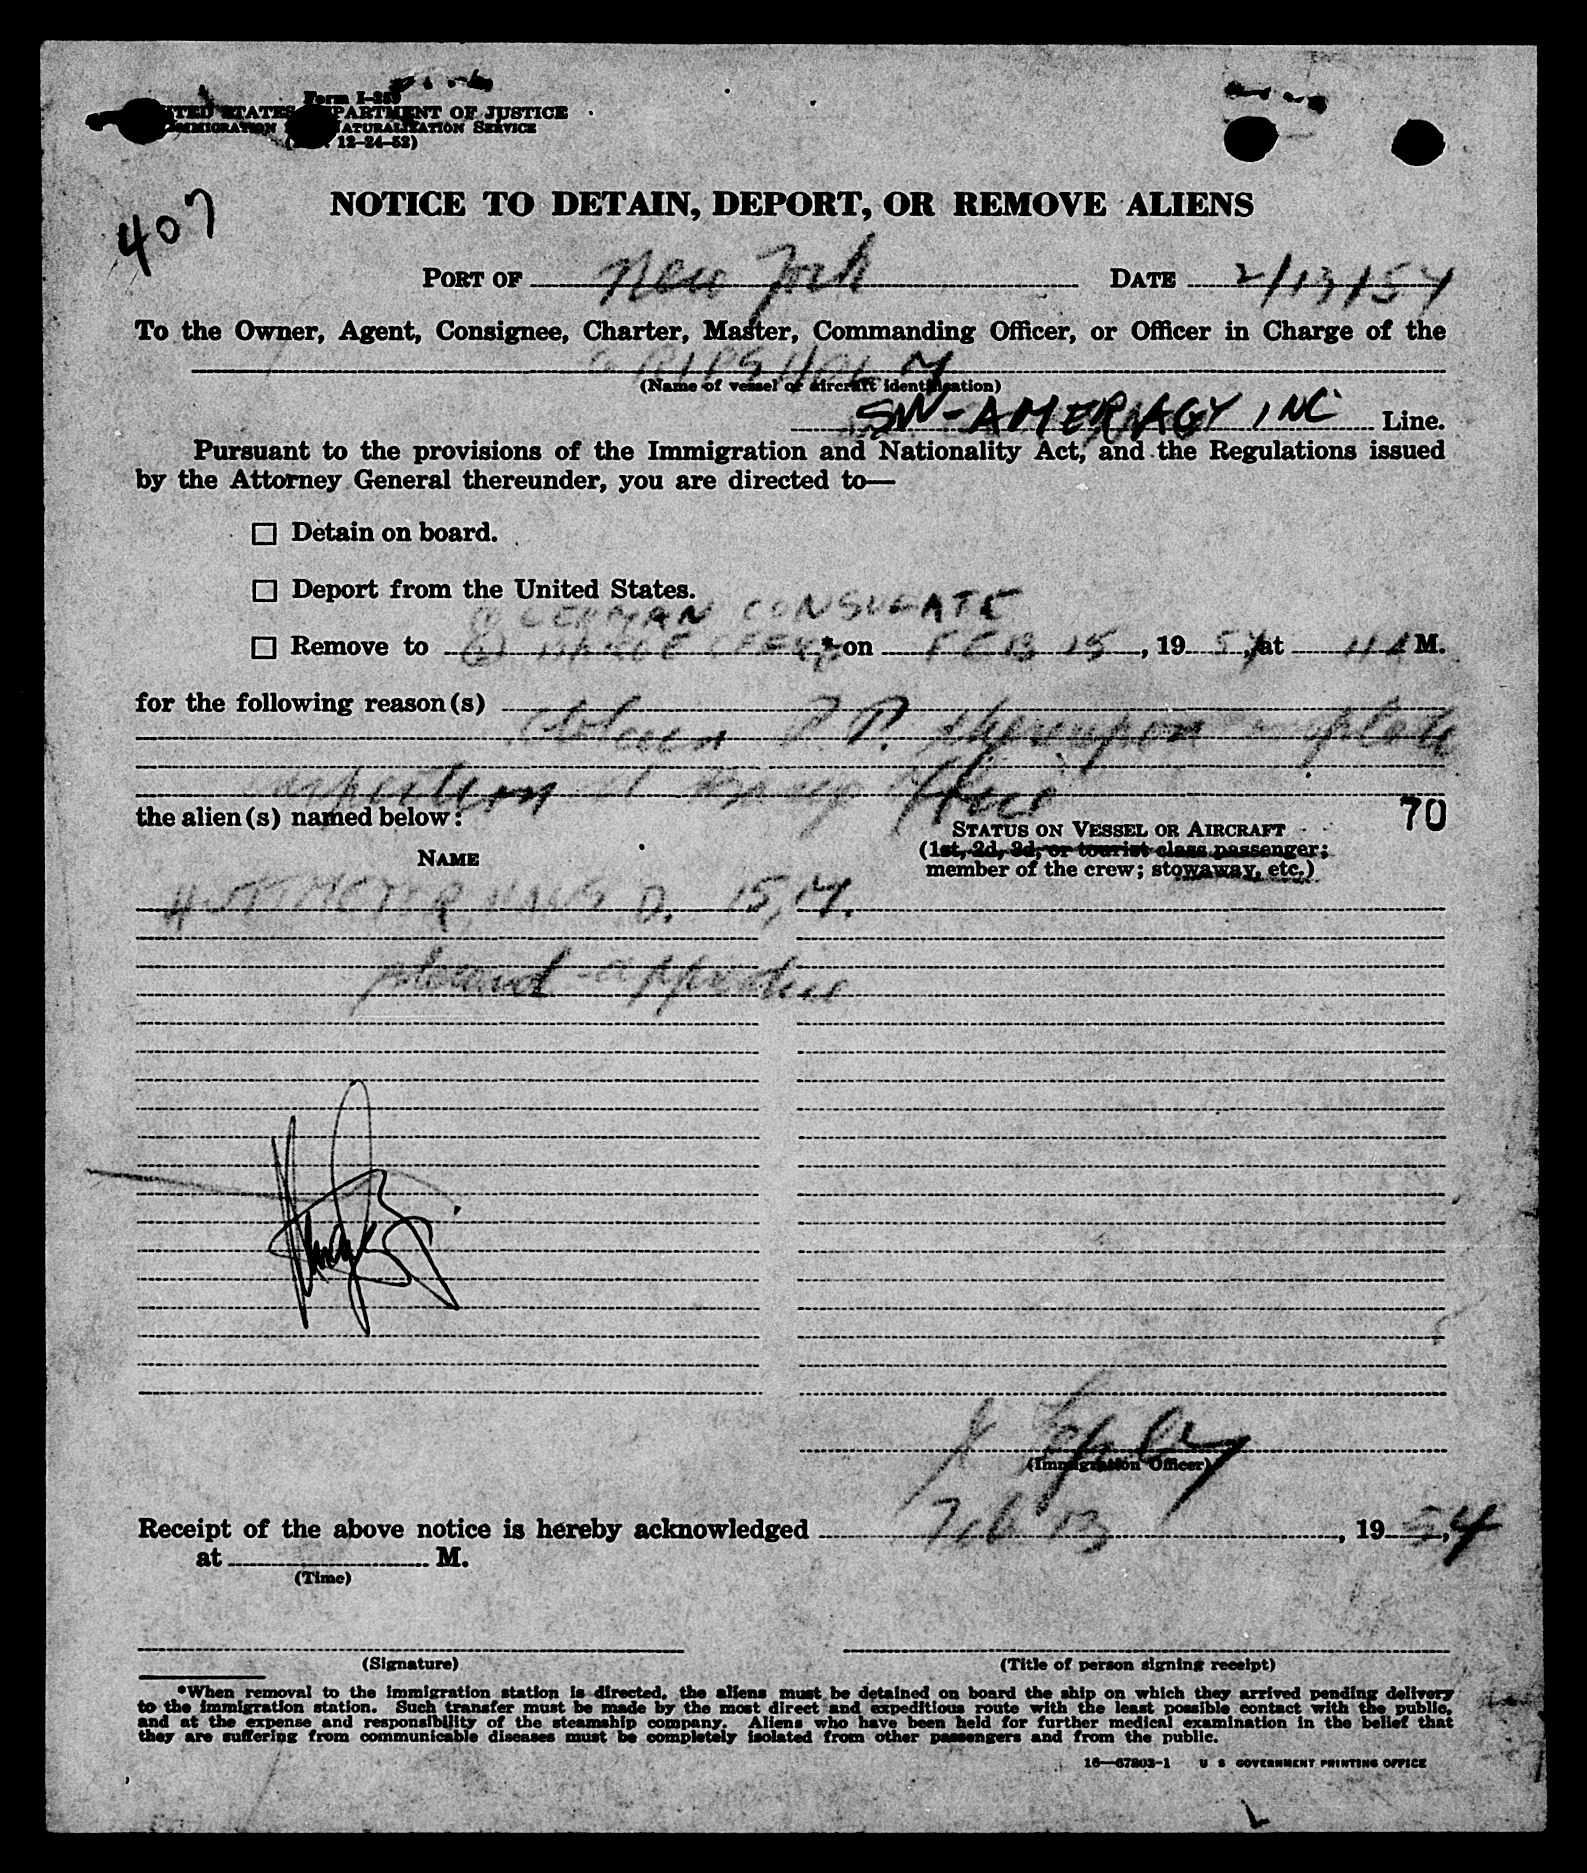 Form I-259
UNITED STATES DEPARTMENT OF JUSTICE
IMMIGRATION NATURALIZATION SERVICE
12-24-52)
407
NOTICE TO DETAIN, DEPORT, OR REMOVE ALIENS
PORT OF New York DATE 2/13/54
To the Owner, Agent, Consignee, Charter, Master, Commanding Officer, or Officer in Charge of the
GRIPSHOLM
(Name of vessel or aircraft identification)
SW-AMER AGY INC Line.
Pursuant to the provisions of the Immigration and Nationality Act, and the Regulations issued
by the Attorney General thereunder, you are directed to—
Detain on board.
Deport from the United States.
① GERMAN CONSULATE
Remove to ② BARGE OFFICE *on FEB 15, 1954, at 11 A M.
for the following reason(s)
obtain P.P. thereupon complete
inspection at Barge Office
the alien(s) named below:
70
STATUS ON VESSEL OR AIRCRAFT
(1st, 2d, 3d, or tourist class passenger;
member of the crew; stowaway, etc.)
NAME
HANS D. 15, 14.
Receipt of the above notice is hereby acknowledged Feb 13, 1954,
(Immigration Officer)
at M.
(Time)
(Signature)
(Title of person signing receipt)
*When removal to the immigration station is directed, the aliens must be detained on board the ship on which they arrived pending delivery
to the immigration station. Such transfer must be made by the most direct and expeditious route with the least possible contact with the public,
and at the expense and responsibility of the steamship company. Aliens who have been held for further medical examination in the belief that
they are suffering from communicable diseases must be completely isolated from other passengers and from the public.
16—67803-1 U S GOVERNMENT PRINTING OFFICE